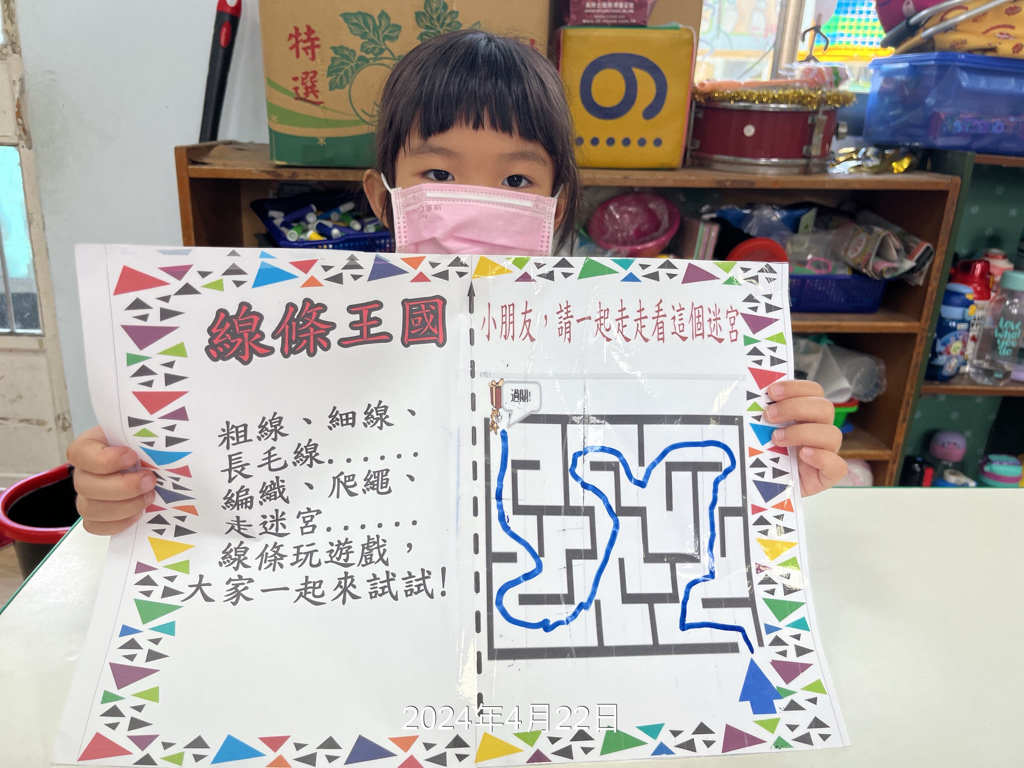 特
選
6
線條王國
小朋友，請一起走走看這個迷宮
過關!
粗線、細線、
長毛線......
編織、爬繩、
走迷宮......
線條玩遊戲，
大家一起來試試!
2024年4月22日